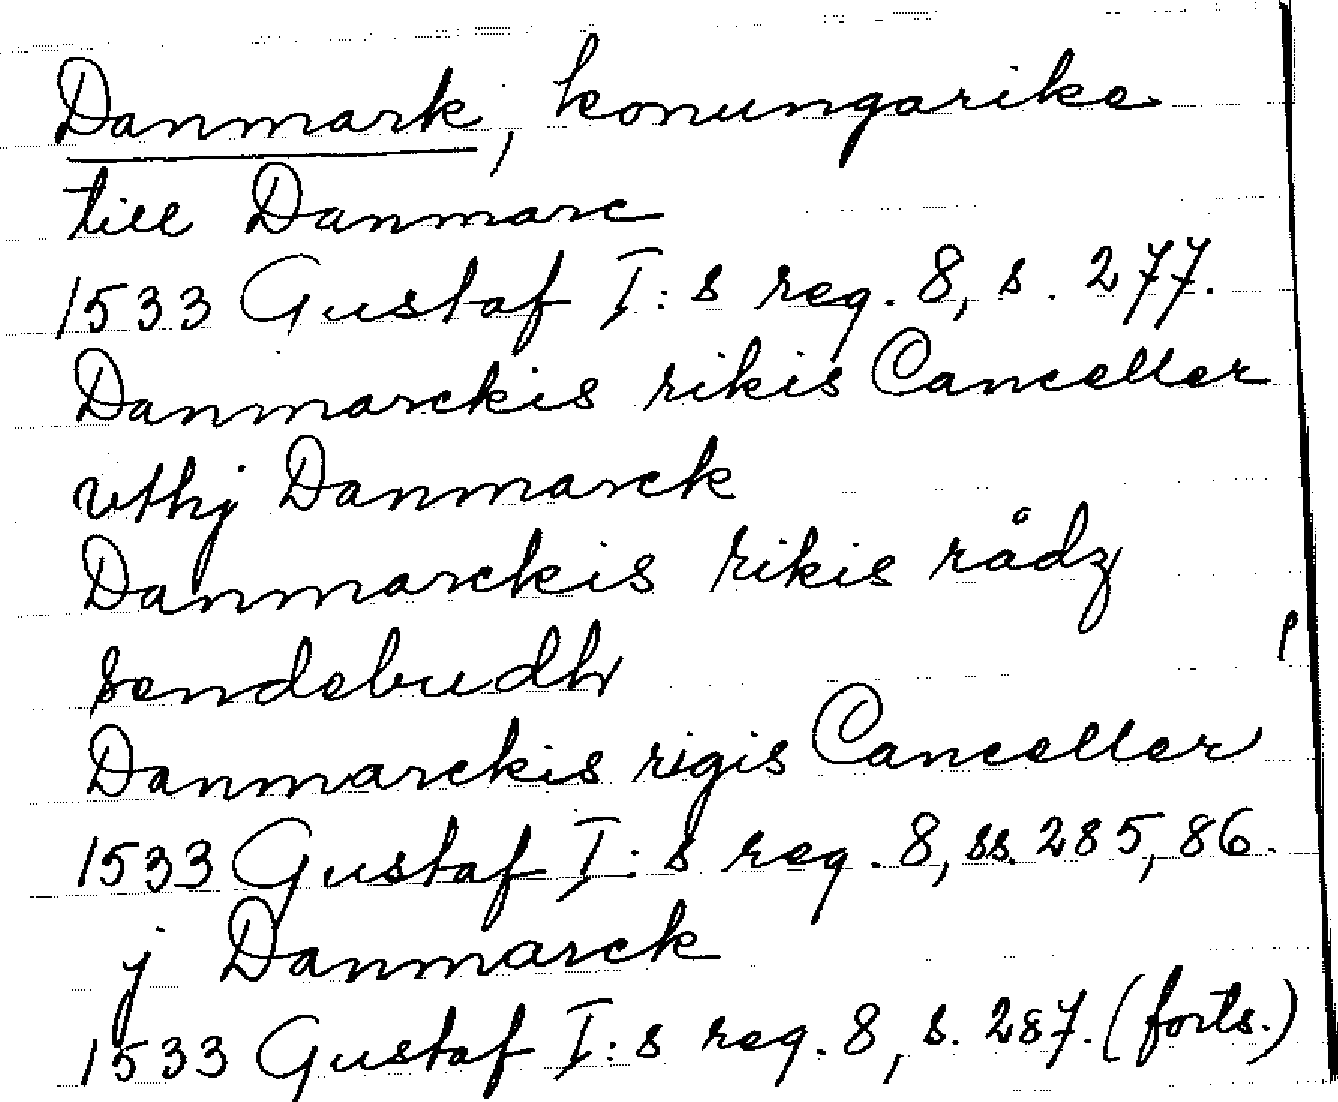 Danmark, konungarike
till Danmarc
1533 Gustaf I:s reg. 8, s. 277.
Danmarckis rikis Canceller
vthj Danmarck
Danmarckis rikis rådz
sendebudh
Danmarckis rigis Canceller
1533 Gustaf I:s reg. 8, ss. 285, 86.
j Danmarck
1533 Gustaf I:s reg. 8, s. 287. (forts.)